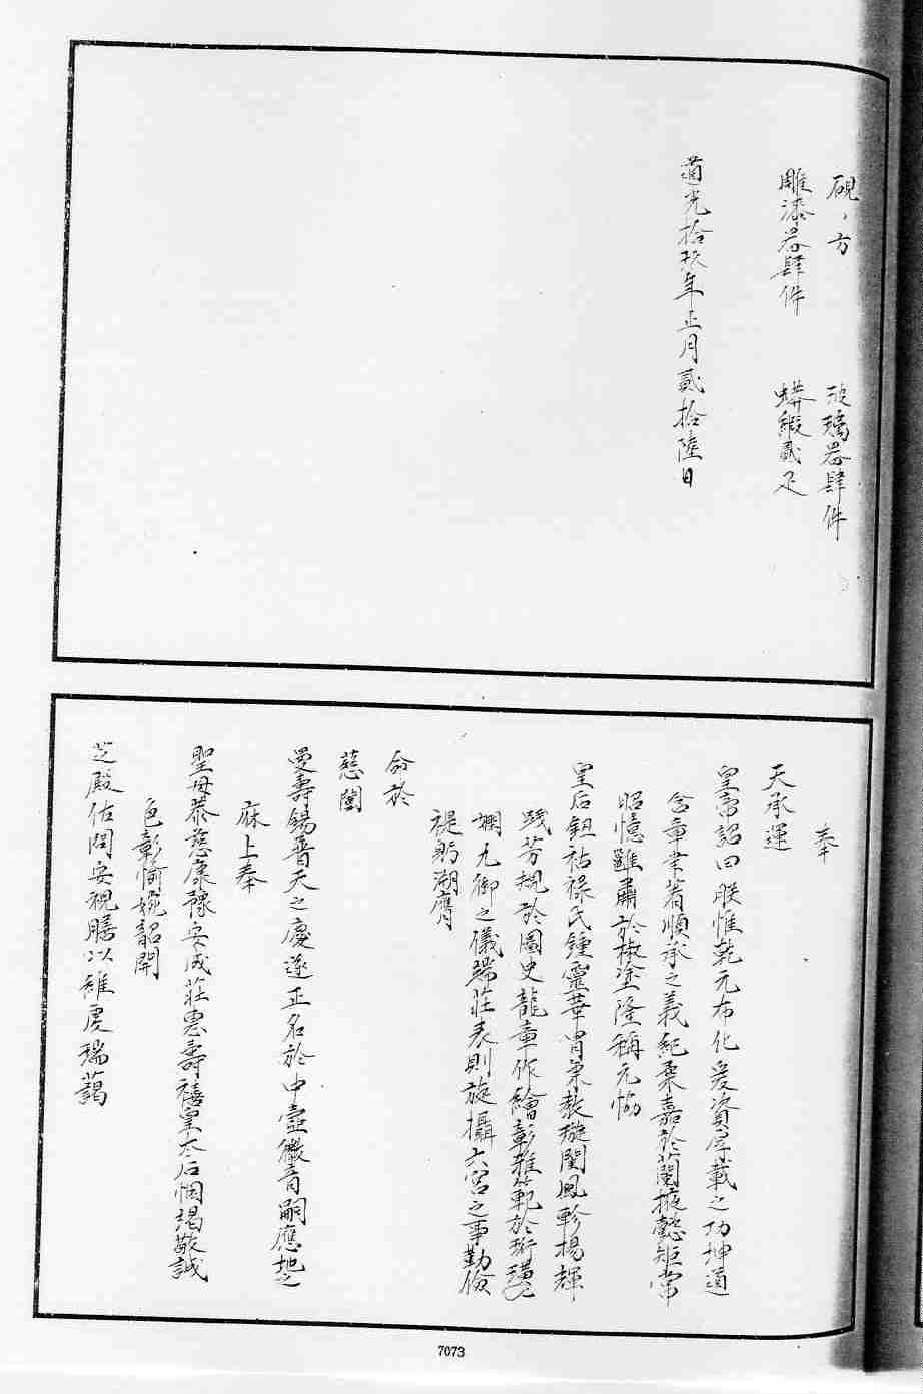 硯、方　玻璃器肆件
雕漆器肆件　蟒緞貳疋
道光拾玖年正月貳拾陸日
奉
天承運
皇帝詔曰朕惟乾元布化爰資厚載之功坤道
含章業著順承之義紀柔嘉於蘭掖懿矩常
昭憶雝肅於椒塗隆稱元恊
皇后鈕祜祿氏鍾靈華冑秉教璇閨鳳軫揚輝
踐芳規於圖史龍章作繪彰雅範於珩璜
嫻九御之儀端莊表則旋攝六宮之事勤儉
禔躬溯膺
命於
慈闈
曼壽錫普天之慶遂正名於中壼徽音嗣應地之
庥上奉
聖母恭慈康豫安成莊惠壽禧皇太后悃竭敬誠
色彰愉婉韶開
芝殿佐問安視膳以雝虔瑞藹
7073